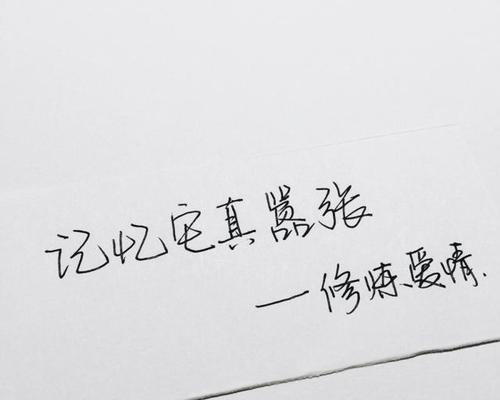 记忆它真嚣张
一修炼爱情.